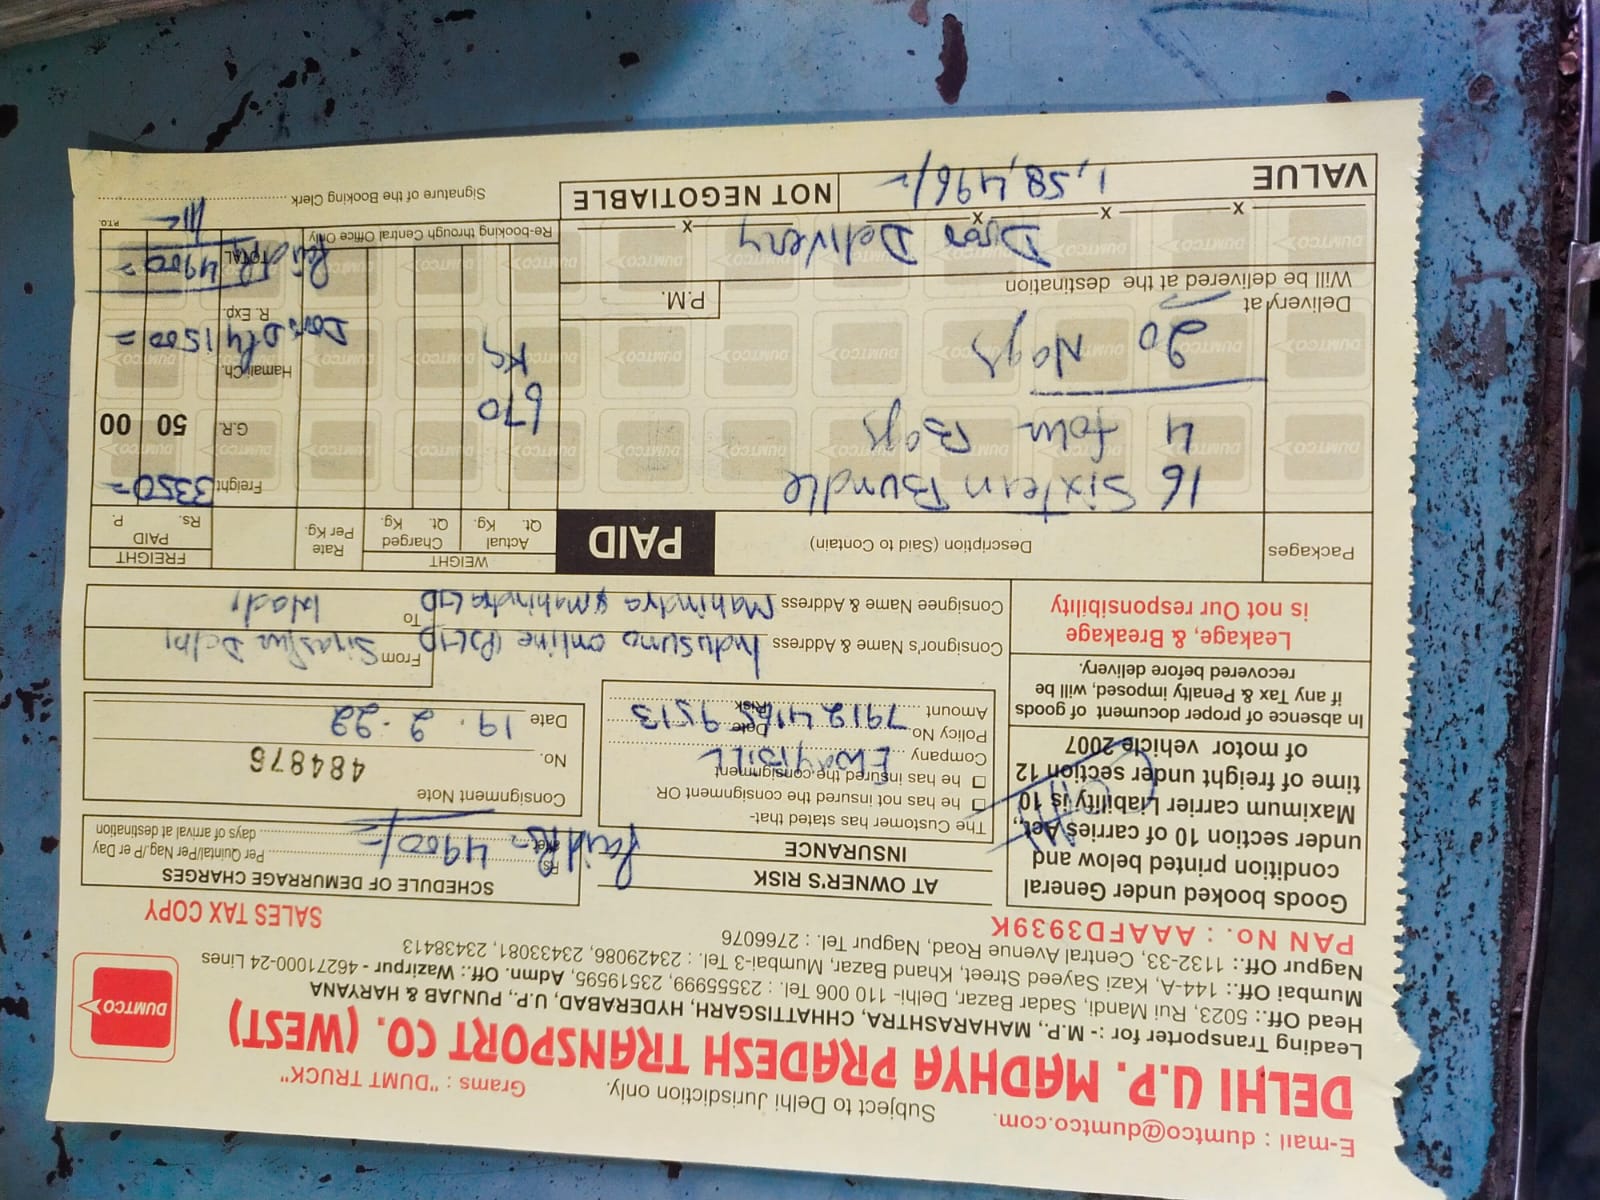 E-mail : dumtco@dumtco.com.
Subject to Delhi Jurisdiction only.
Grams : "DUMT TRUCK"
DELHI U.P. MADHYA PRADESH TRANSPORT CO. (WEST)
DUMTCO
Leading Transporter for :- M.P., MAHARASHTRA, CHHATTISGARH, HYDERABAD, U.P., PUNJAB & HARYANA
Head Off.: 5023, Rui Mandi, Sadar Bazar, Delhi- 110 006 Tel. : 23555999, 23519595, Admn. Off.: Wazirpur - 46271000-24 Lines
Mumbai Off.: 144-A, Kazi Sayeed Street, Khand Bazar, Mumbai-3 Tel. : 23429086, 23433081, 23438413
Nagpur Off.: 1132-33, Central Avenue Road, Nagpur Tel. : 2766076
PAN No. : AAAFD3939K
SALES TAX COPY
Goods booked under General
condition printed below and
under section 10 of carries Act,
Maximum carrier Liability is 10
time of freight under section 12
of motor vehicle 2007
In absence of proper document of goods
if any Tax & Penalty imposed, will be
recovered before delivery.
Leakage, & Breakage
is not Our responsibility
AT OWNER'S RISK
INSURANCE
The Customer has stated that-
he has not insured the consignment OR
he has insured the consignment
Company EwayBill
Policy No. Date
7912 4165 9513
Amount Risk
SCHEDULE OF DEMURRAGE CHARGES
Per Quintal/Per Nag/P er Day
days of arrival at destination
Paid Rs 4900/=
Consignment Note
No. 484876
Date 19.2.22
Consignor's Name & Address Indusuno online (P) LTD
From Siraspur Delhi
Consignee Name & Address Mahindra & mahindra LTD
To
Packages
Description (Said to Contain)
PAID
WEIGHT
Actual
Qt. Kg.
Charged
Qt. Kg.
Rate
Per Kg.
FREIGHT
PAID
Rs. P.
16 Sixteen Bundle
4 four Bags
20 Nags
670
Kg
Freight 3350=
G.R. 50 00
Hamali Ch.
Door Dly 1500=
R. Exp.
TOTAL 4900=
Paid
Delivery at
Will be delivered at the destination
P.M.
Door Delivery
x x x x
Re-booking through Central Office Only
VALUE 1,58,496/=
NOT NEGOTIABLE
Signature of the Booking Clerk
P.T.O.